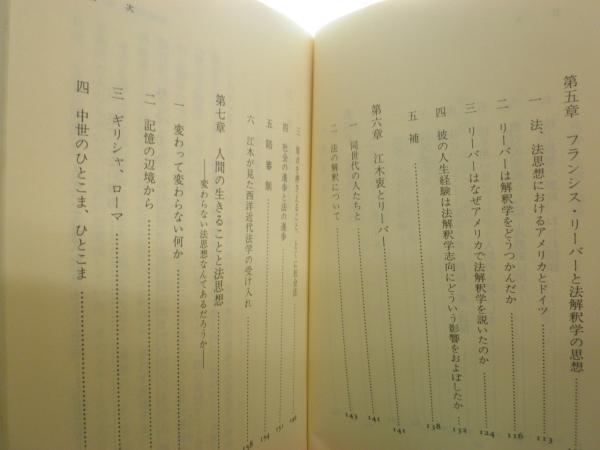 第五章 フランシス・リーバーと法解釈学の思想
一 法、法思想におけるアメリカとドイツ 113
二 リーバーは解釈学をどうつかんだか 116
三 リーバーはなぜアメリカで法解釈学を説いたのか 124
四 彼の人生経験は法解釈学志向にどういう影響をおよぼしたか 132
五 補 138
第六章 江木衷とリーバー 141
一 同世代の人たちと 141
二 法の解釈について 143
三 146
四 社会の進歩と法の進歩 151
五 陪審制 154
六 江木が見た西洋近代法学の受け入れ 158
第七章 人間の生きることと法思想
——変わらない法思想なんてあるだろうか——
一 変わって変わらない何か
二 記憶の辺境から
三 ギリシャ、ローマ
四 中世のひとこま、ひとこま
次